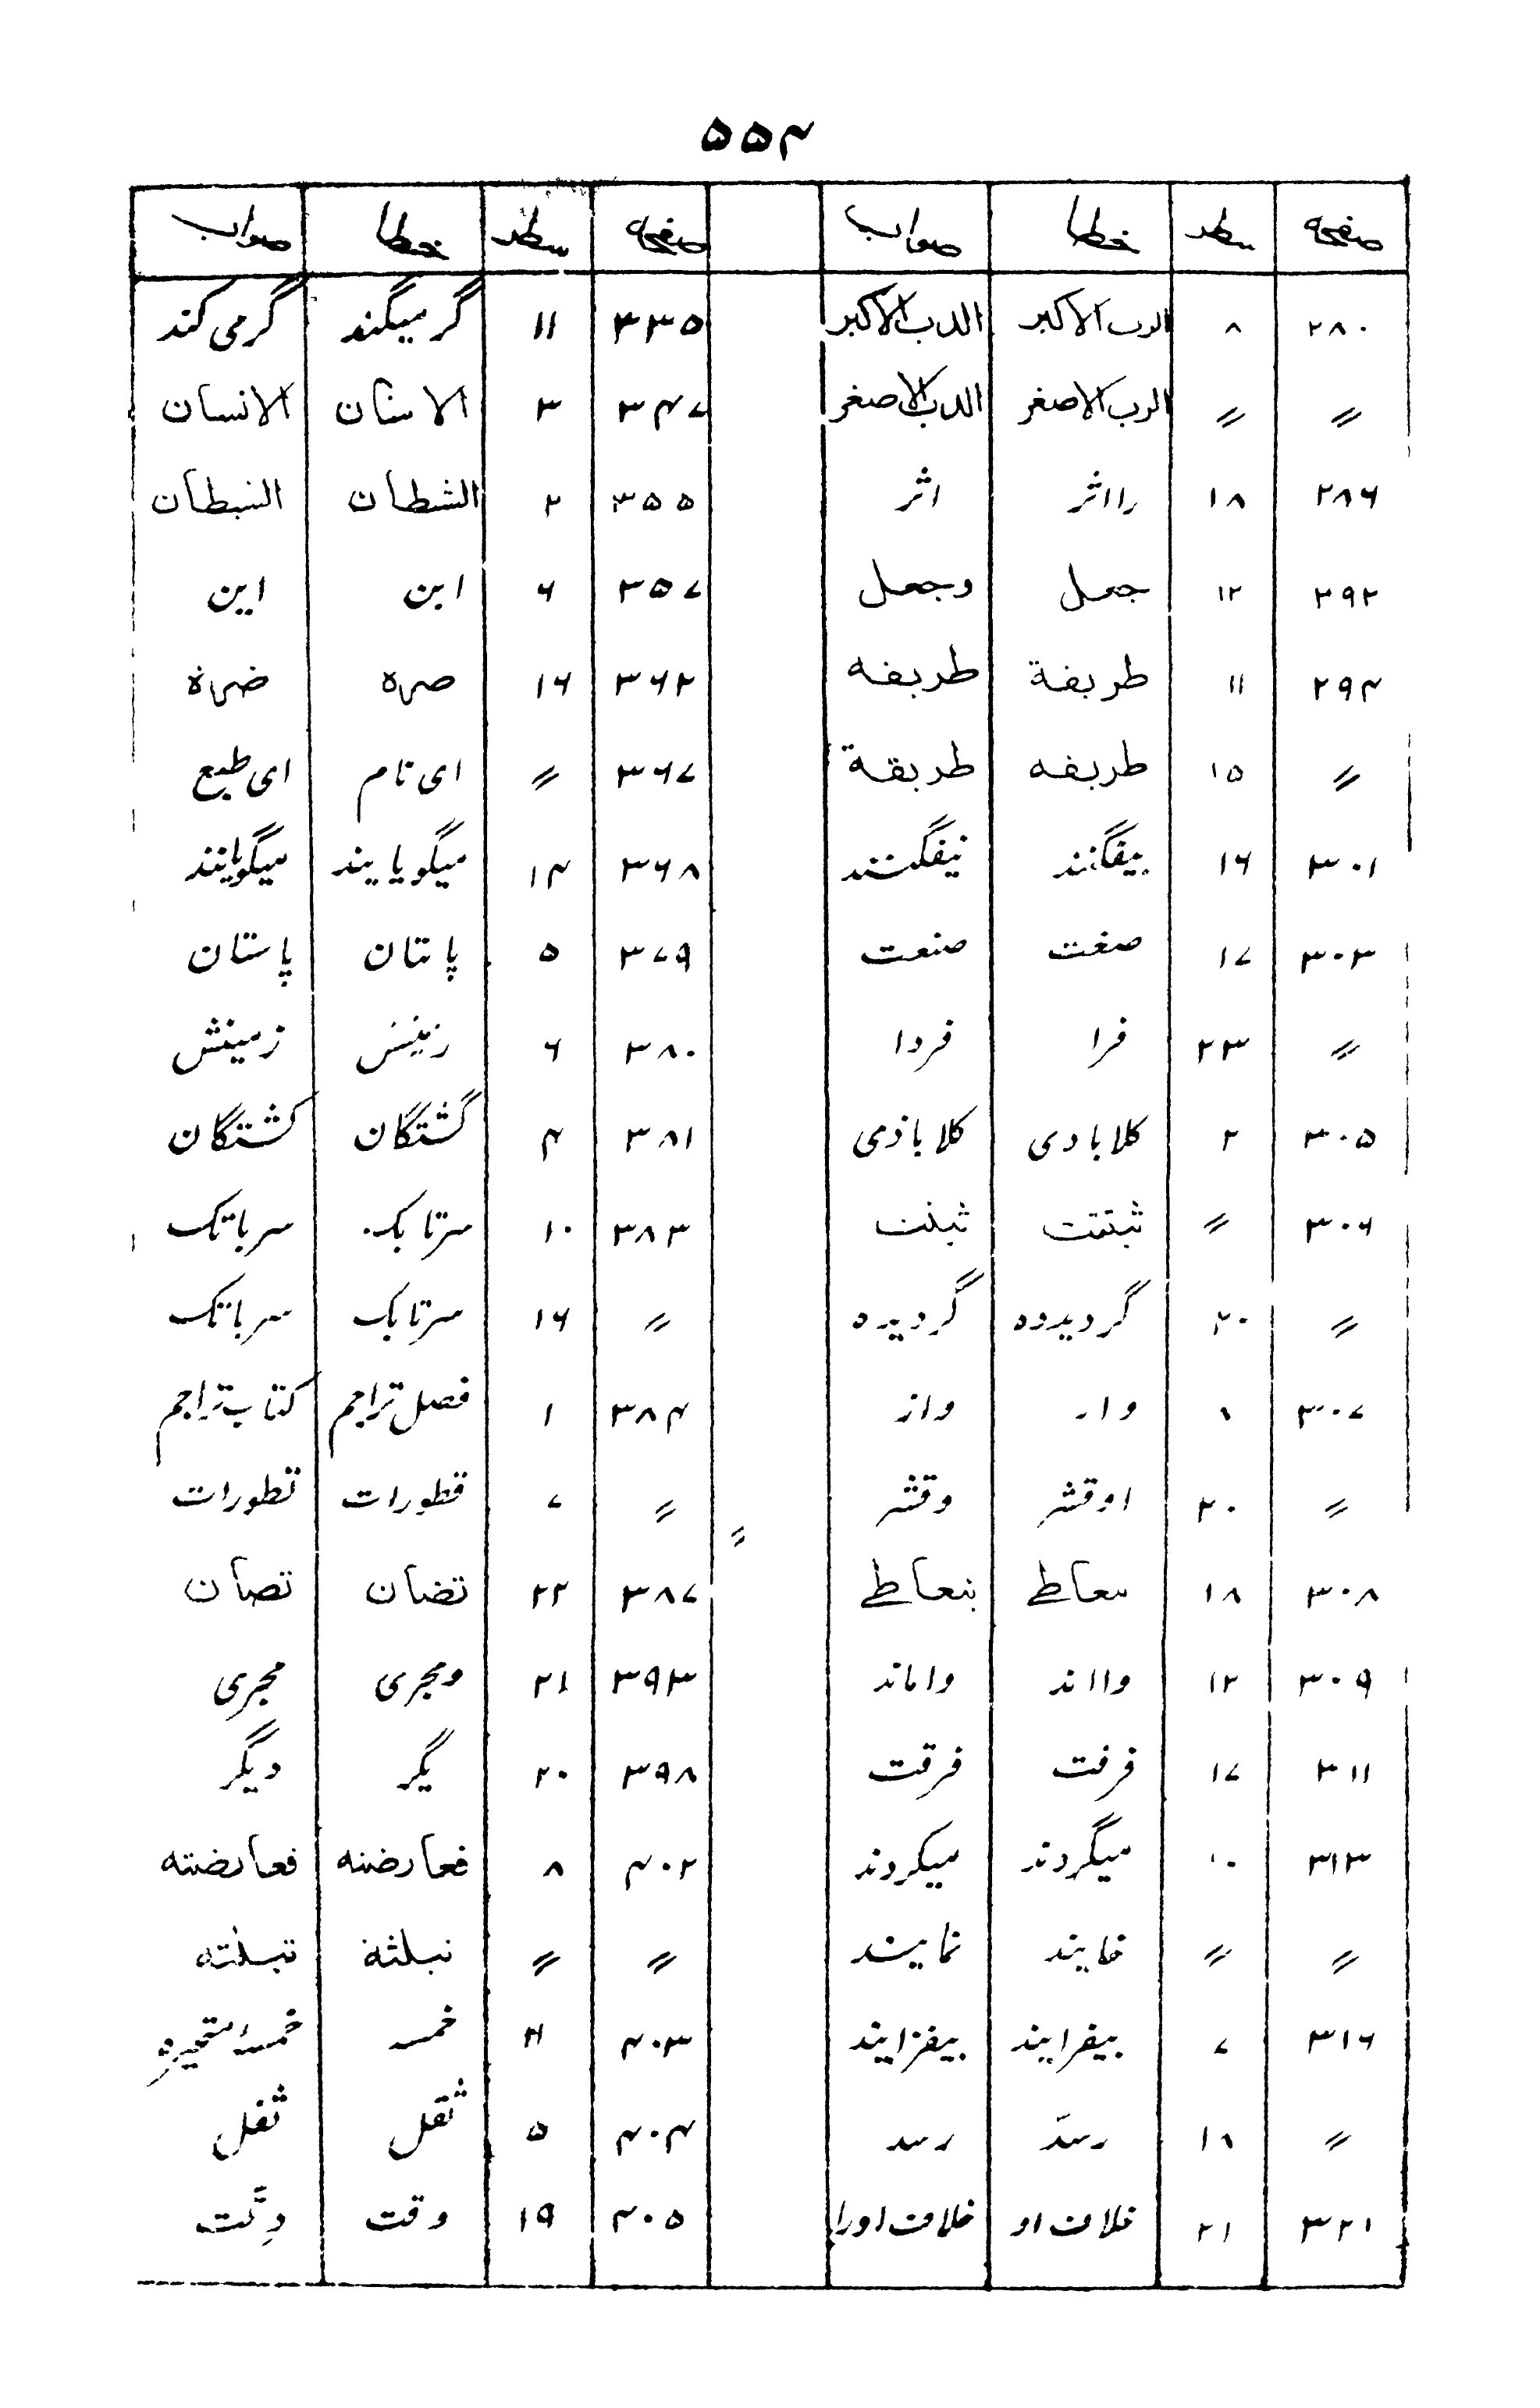 ۵۵۴
صفحه سطر خطا صواب صفحه سطر خطا صواب
۲۸۰ ۸ الرب الاکبر الدب الاکبر ۳۳۵ ۱۱ گرمیگند گرمی کند
〃 〃 الرب الاصغر الدب الاصغر ۳۴۷ ۳ الاسنان الانسان
۲۸۶ ۱۸ رااثر اثر ۳۵۵ ۲ الشطان
۲۹۲ ۱۲ جعل وجعل ۳۵۷ ۶ ابن این
۲۹۴ ۱۱ طریفة طریفه ۳۶۲ ۱۶ صره ضرة
〃 ۱۵ طریفه طریقة ۳۶۷ 〃 ای نام ای طبع
۳۰۱ ۱۶ بیفگنند نیفگنند ۳۶۸ ۱۴ میگویایند میگویانند
۳۰۳ ۱۷ صغت صنعت ۳۷۹ ۵ پاتان پاستان
〃 ۲۳ فرا فردا ۳۸۰ ۶ زمینش
۳۰۵ ۲ کلابادی کلاباذی ۳۸۱ ۴ گشتگان کشتگان
۳۰۶ 〃 ثبتت ثبلت ۳۸۳ ۱۰ سرتابک سرباتک
〃 ۲۰ گردیدده گردیده 〃 ۱۶ سرتابک سرباتک
۳۰۷ ۱ وار واز ۳۸۴ ۱ فصل تراجم کتاب تراجم
〃 ۲۰ اوقشر وقشر 〃 ۷ قطورات تطورات
۳۰۸ ۱۸ معاطے بنعاطے ۳۸۷ ۲۲ تضان تصان
۳۰۹ ۱۲ وااند واماند ۳۹۳ ۲۱ ومجری مجری
۳۱۱ ۱۷ فرفت فرقت ۳۹۸ ۲۰ یگر دیگر
۳۱۳ ۱۰ میگردند میکردند ۴۰۲ ۸ فعارضنه فعارضته
〃 〃 نمایند 〃 〃
۳۱۶ ۷ بیفرایند بیفزایند ۴۰۳ ۲۱ خمسه خمسهٔ متحیره
〃 ۱۸ رسدّ رسد ۴۰۴ ۵ ثقل ثفل
۳۲۱ ۲۱ خلافت او خلافت اورا ۴۰۵ ۱۹ وقت دِقّت